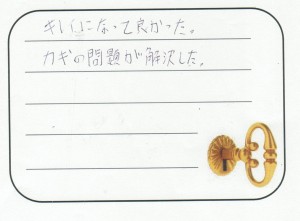 キレイになって良かった。
カギの問題が解決した。